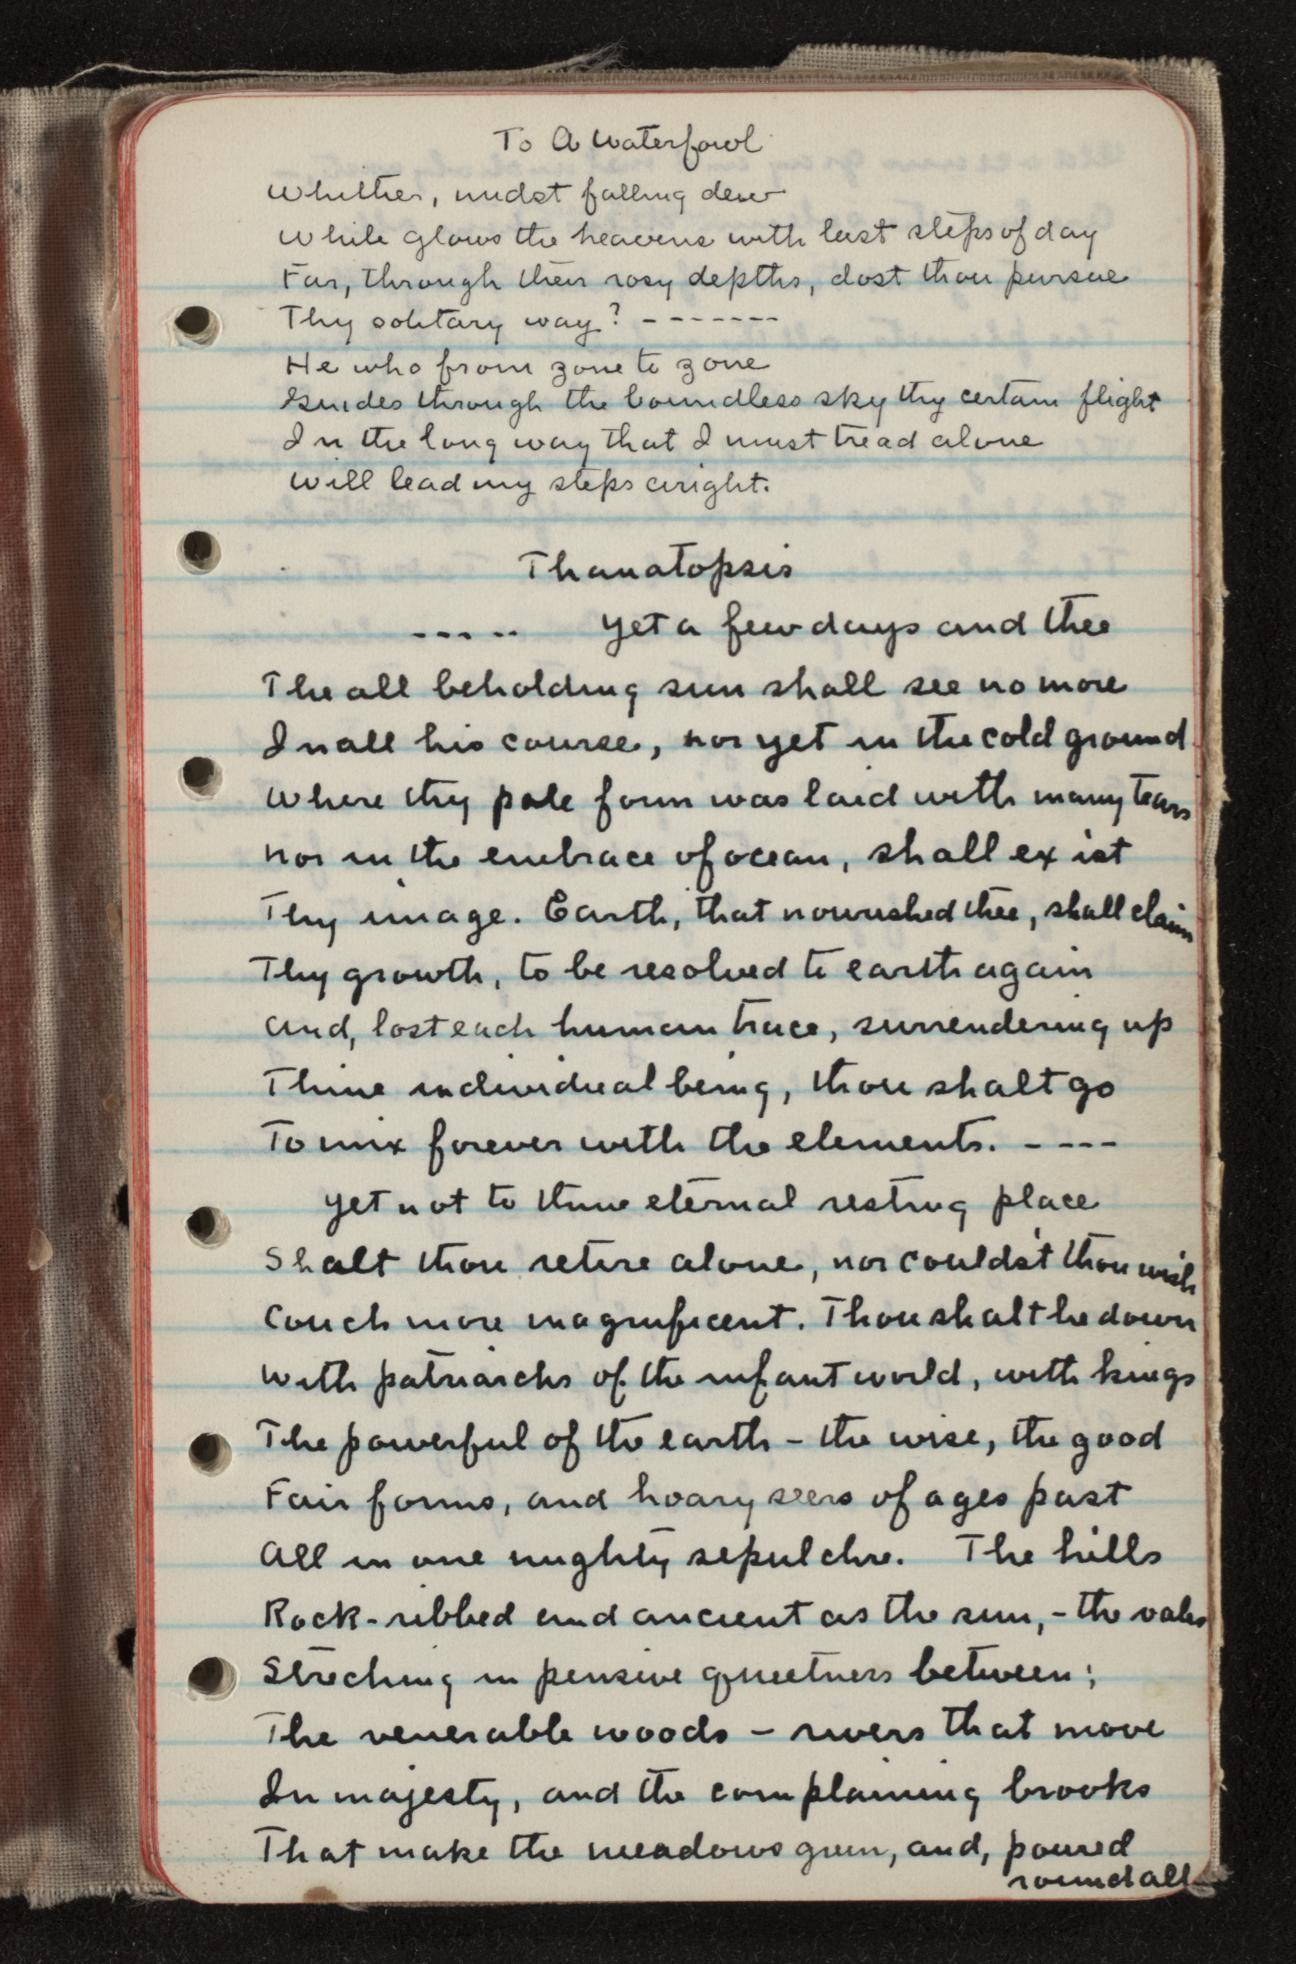 To A Waterfowl
Whither, midst falling dew
While glows the heavens with last steps of day
Far, through their rosy depths, dost thou pursue
Thy solitary way? - - - - - - -
He who from zone to zone
Guides through the boundless sky thy certain flight
In the long way that I must tread alone
Will lead my steps aright.
Thanatopsis
- - - - - Yet a few days and thee
The all beholding sun shall see no more
In all his course, nor yet in the cold ground
Where thy pale form was laid with many tears
Nor in the embrace of ocean, shall exist
Thy image. Earth, that nourished thee, shall claim
Thy growth, to be resolved to earth again
And, lost each human trace, surrendering up
Thine individual being, thou shalt go
To mix forever with the elements. - - - -
Yet not to thine eternal resting place
Shalt thou retire alone, nor could'st thou wish
Couch more magnificent. Thou shalt lie down
With patriarchs of the infant world, with kings
The powerful of the earth - the wise, the good
Fair forms, and hoary seers of ages past
All in one mighty sepulchre. The hills
Rock-ribbed and ancient as the sun, - the vales
Streching in pensive quietness between;
The venerable woods - rivers that move
In majesty, and the complaining brooks
That make the meadows green, and, poured
round all